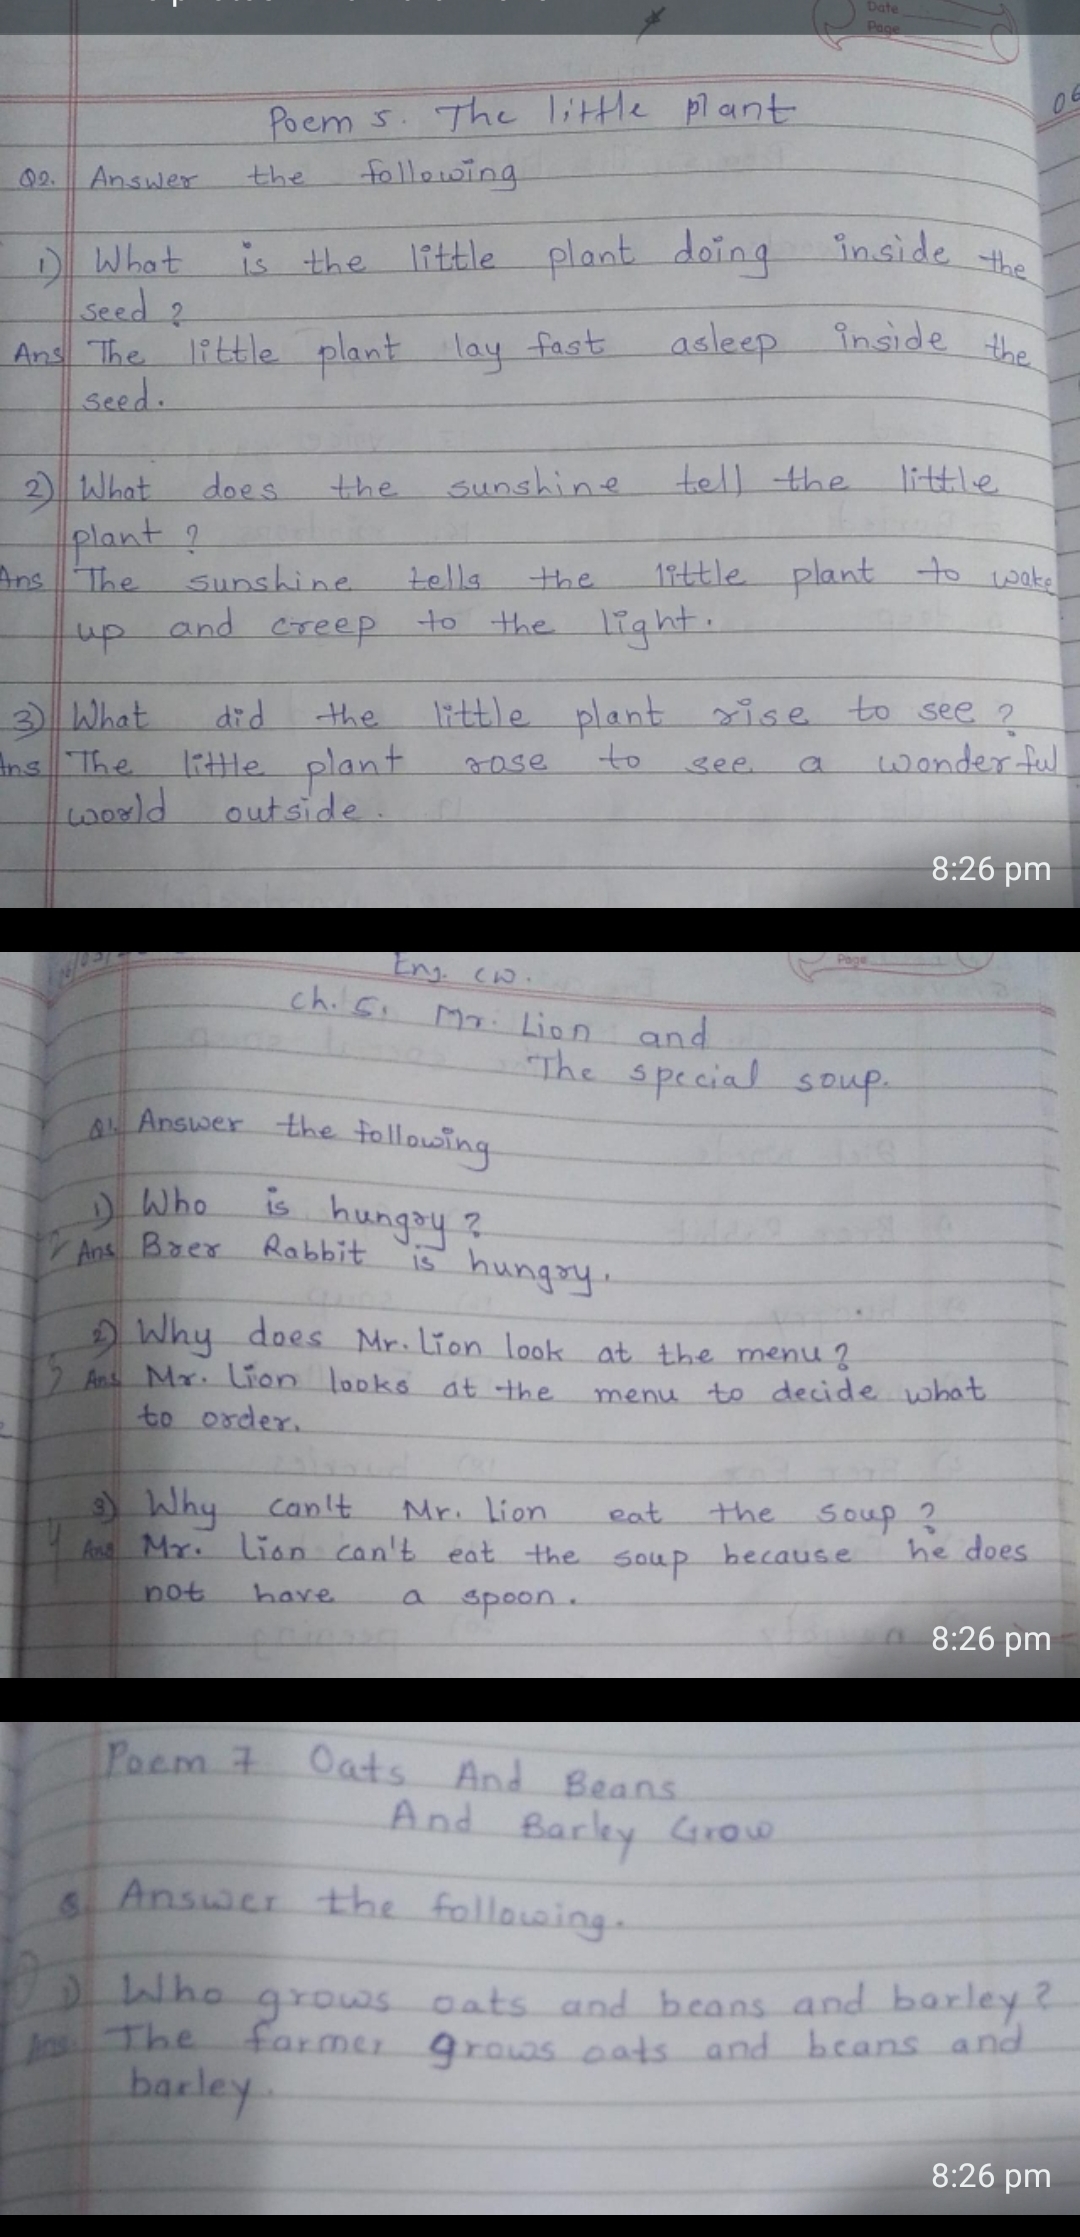 Date
Page
Poem 5. The little plant
Q2. Answer the following
1) What is the little plant doing inside the
seed ?
Ans The little plant lay fast asleep inside the
seed.
2) What does the sunshine tell the little
plant ?
Ans The sunshine tells the little plant to wake
up and creep to the light.
3) What did the little plant rise to see ?
Ans The little plant rose to see a wonderful
world outside.
8:26 pm
Eng. CW.
Page
Ch. 5. Mr. Lion and
The special soup.
Q1. Answer the following
1) Who is hungry ?
Ans Brer Rabbit is hungry.
2) Why does Mr. Lion look at the menu ?
Ans Mr. Lion looks at the menu to decide what
to order.
3) Why can't Mr. Lion eat the soup ?
Ans Mr. Lion can't eat the soup because he does
not have a spoon.
8:26 pm
Poem 7 Oats And Beans
And Barley Grow
Answer the following.
1) Who grows oats and beans and barley ?
Ans. The farmer grows oats and beans and
barley.
8:26 pm